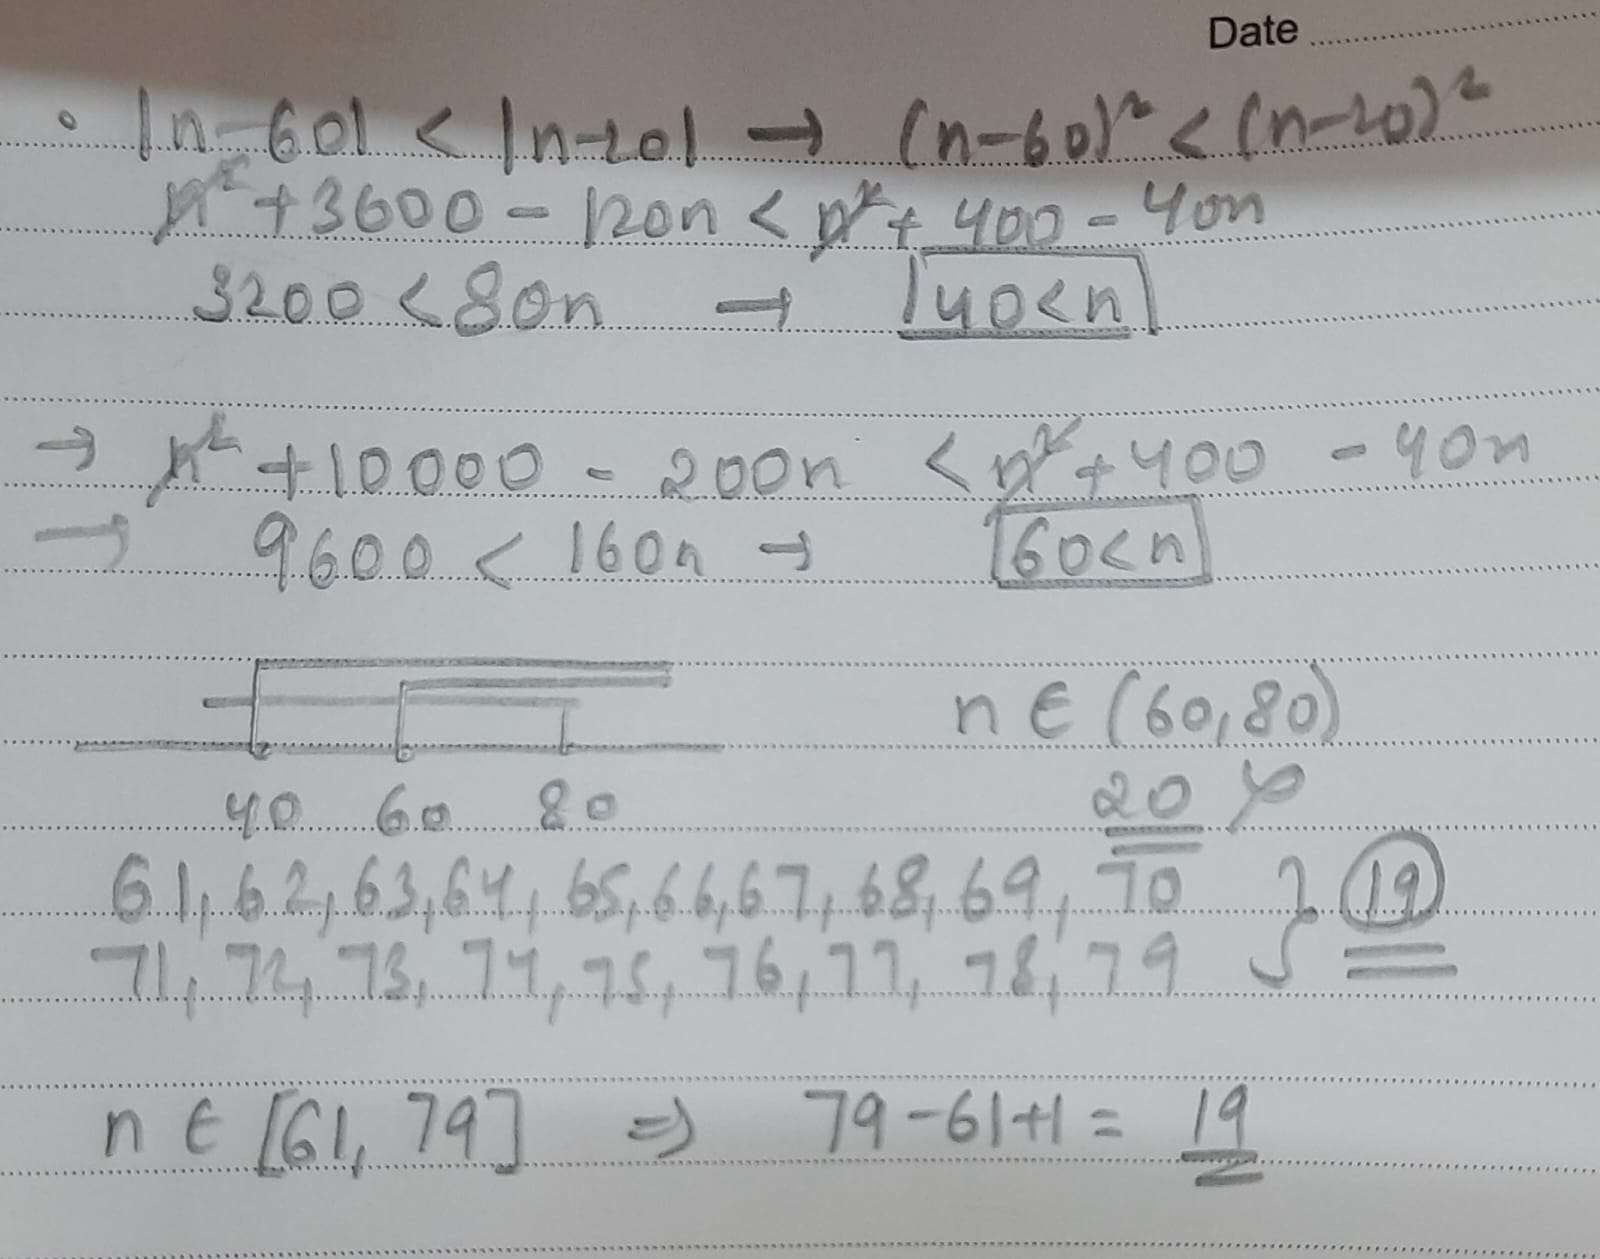 Date
• |n-60| < |n-20| → (n-60)² < (n-20)²
n²+3600 - 120n < n²+ 400 - 40n
3200 < 80n → 40<n
→ n²+10000 - 200n < n²+400 - 40n
→ 9600 < 160n → 60<n
n ∈ (60,80)
40 60 80 20
61, 62, 63, 64, 65, 66, 67, 68, 69, 70 } 19
71, 72, 73, 74, 75, 76, 77, 78, 79
n ∈ [61, 79] ⇒ 79-61+1 = 19